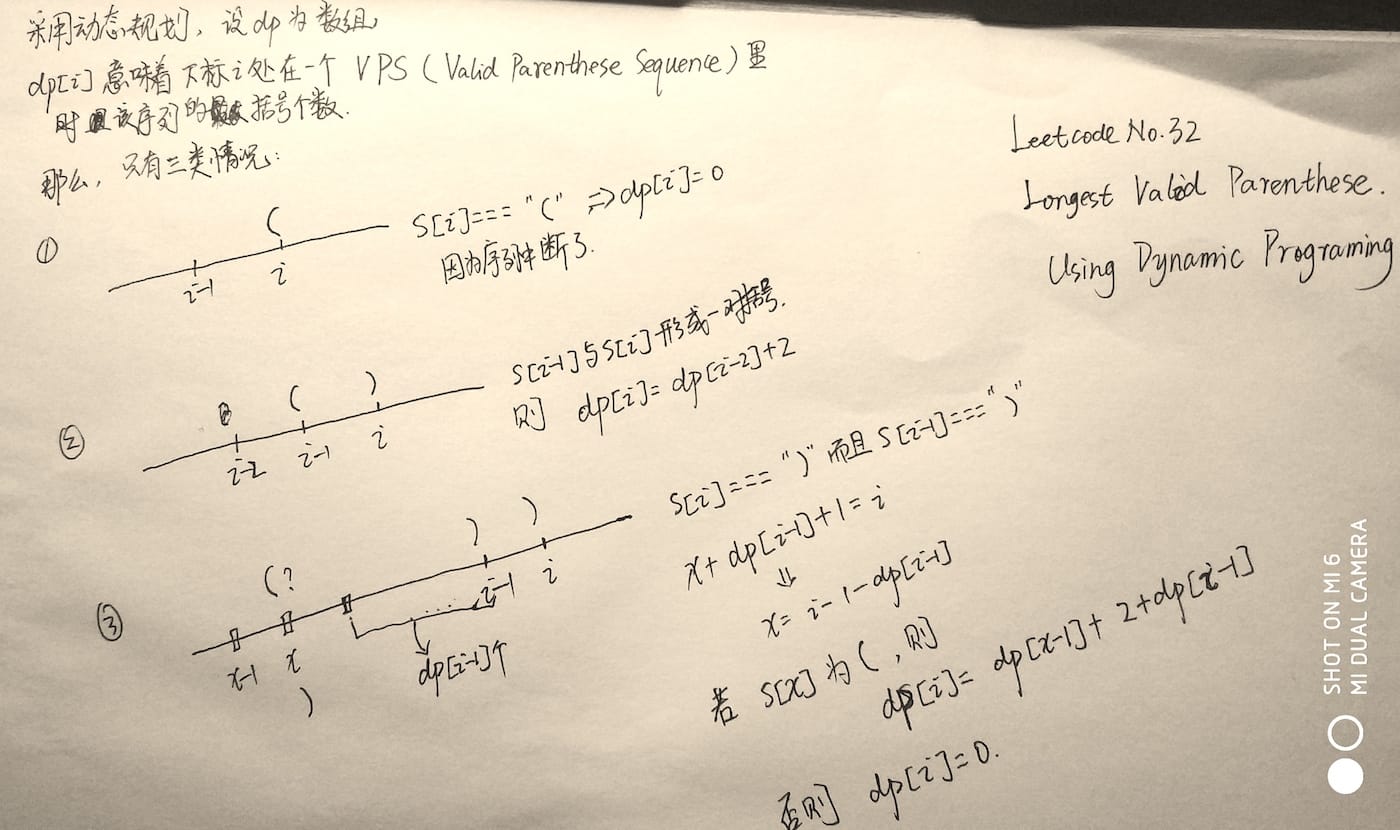 采用动态规划, 设dp为数组
dp[i]意味着下标i处在一个 VPS (Valid Parenthese Sequence) 里
时该序列的括号个数.
那么, 只有三类情况:
Leetcode No.32
Longest Valid Parenthese.
Using Dynamic Programing
①
(
i-1 i
S[i]=== "(" => dp[i]=0
因为序列中断了.
②
( )
i-2 i-1 i
S[i-1]与S[i]形成一对括号.
则 dp[i]= dp[i-2]+2
③
(? ) )
x-1 x i-1 i
)
dp[i-1]个
S[i]=== ")" 而且 S[i-1]===")"
x+dp[i-1]+1= i
⇓
x= i-1-dp[i-1]
若 S[x] 为 (, 则
dp[i]= dp[x-1]+ 2+dp[i-1]
否则 dp[i]=0.
SHOT ON MI 6
MI DUAL CAMERA